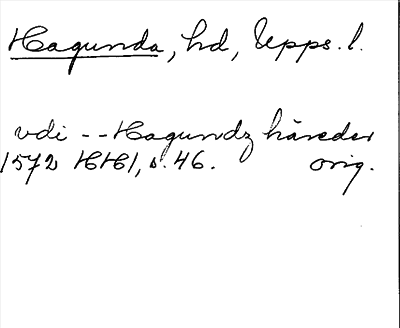 Hagunda, hd, Upps. l.
vdi -- Hagundz häreder
1572 HH1, s. 46. orig.